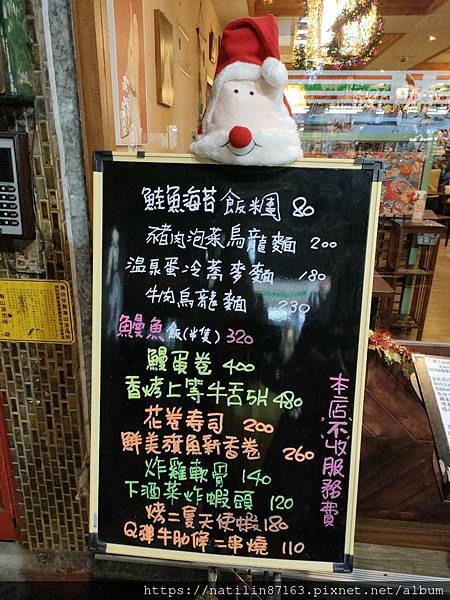 鮭魚海苔飯糰 80
豬肉泡菜烏龍麵 200
溫泉蛋冷蕎麥麵 180
牛肉烏龍麵 230
鰻魚飯(半隻) 320
鰻蛋卷 400
香烤上等牛舌5H 480
花卷寿司 200
鮮美旗魚新香卷 260
炸雞軟骨 140
下酒菜炸蝦頭 120
烤二隻天使蝦 180
Q彈牛肋條二串燒 110
本店不收服務費
https://natilin87163.pixnet.net/album